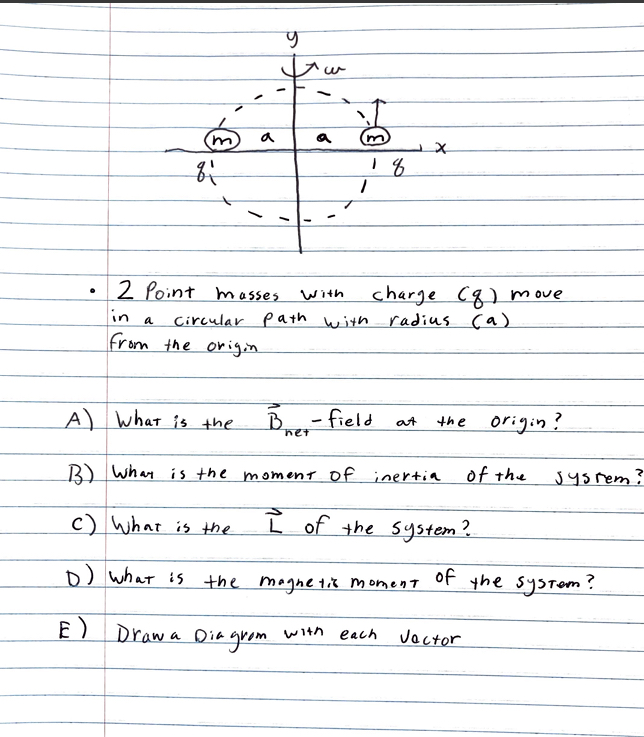 y
w
m a a m x
q q
• 2 Point masses with charge (q) move
in a circular path with radius (a)
from the origin
A) What is the B⃗net-field at the origin?
B) What is the moment of inertia of the system?
C) What is the L⃗ of the system?
D) What is the magnetic moment of the system?
E) Draw a Diagram with each Vector